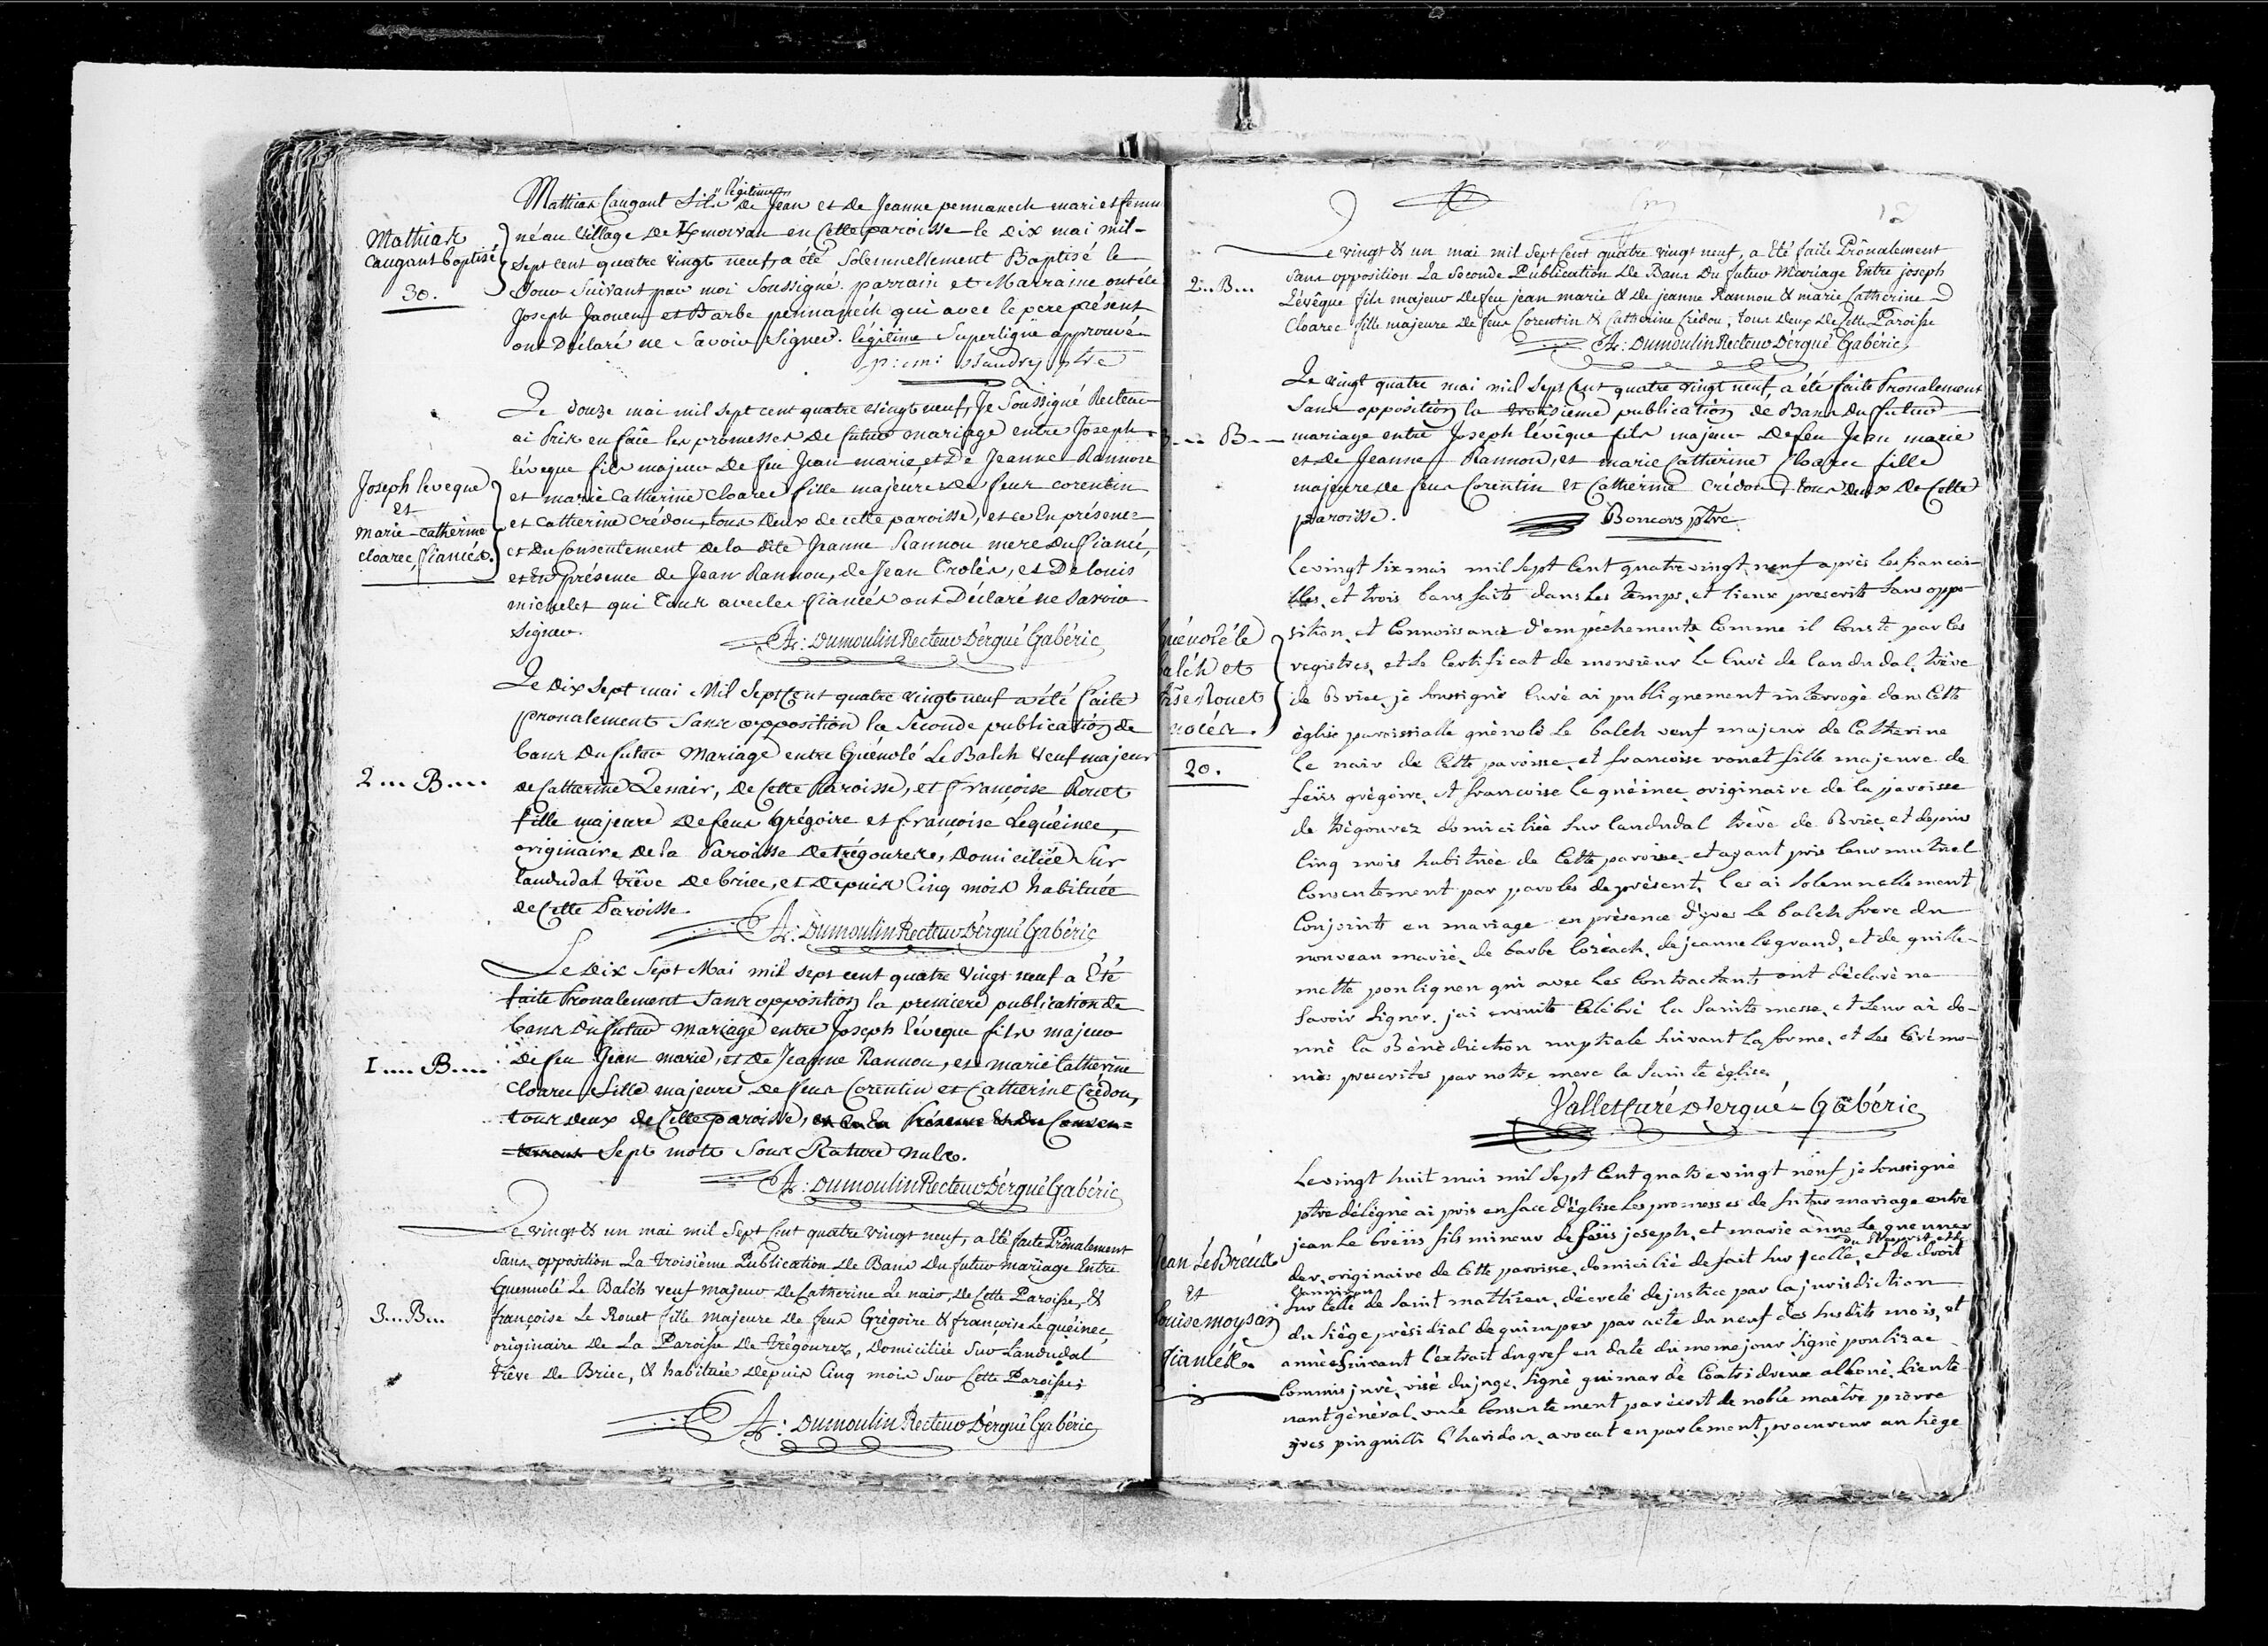 Mathias Caugant fils "légitime" de Jean et de Jeanne pennanech mari et femme
Mathias
Caugant baptisé
30.
né au village de Kmorvan en cette paroisse le dix mai mil-
sept cent quatre vingt neuf, a été solemnellement Baptisé le
jour suivant par moi soussigné. parrain et Marraine ont été
Joseph Jaouen et Barbe pennanéch qui avec le pere présent
ont Déclaré ne savoir signer. légitime superligne approuvé
ptre
Le douze mai mil sept cent quatre vingt neuf, Je soussigné Recteur
ai pris en face les promesses de futur mariage entre Joseph
Joseph leveque
et
marie-catherine
cloarec, fiancés.
lévêque fils majeur de feu Jean marie, et de Jeanne Rannou
et marie Catherine Cloarec fille majeure de feus corentin
et Catherine Crédou, tous deux de cette paroisse, et ce En présence
et du Consentement de la dite Jeanne Rannou mere du fiancé,
et En présence de Jean Rannou, de Jean Crolés, et De louis
michelet qui tous avec les fiancés ont Déclaré ne savoir
signer.
A: Dumoulin Recteur D'ergué Gabéric
Le Dix sept mai Mil sept Cent quatre vingt neuf a été faite
pronalement sans opposition la seconde publication de
2... B....
bans du futur Mariage entre Guénolé Le Balch veuf majeur
de Catherine Lenair, de Cette Paroisse, et françoise Rouet
fille majeure de feus Grégoire et françoise Lequéinec,
originaire de la Paroisse de trégourez, domiciliée sur
landudal trêve de briec, et depuis Cinq mois habituée
de Cette Paroisse.
A: Dumoulin Recteur D'ergué Gabéric
Le Dix sept Mai mil sept cent quatre vingt neuf a Eté
faite Pronalement sans opposition la premiere publication de
bans du futur mariage entre Joseph lévêque fils majeur
1.... B....
de feu Jean marie, et de Jeanne Rannou, et marie Catherine
Cloarec fille majeure de feus Corentin et Catherine Crédou,
tous deux de Cette paroisse, et ce En Présence et du Consen=
=tement sept mots sous Rature nuls.
A: Dumoulin Recteur D'ergué Gabéric
Le vingt & un mai mil sept Cent quatre vingt neuf, a été faite Prônalement
sans opposition La troisième Publication de Bans du futur mariage Entre
3... B...
Guennolé Le Baléh veuf majeur de Catherine Le nair, de Cette Paroisse, &
françoise Le Rouet fille majeure de feus Grégoire & françoise Le quéinec,
originaire de La Paroisse de trégourez, domiciliée sur Landudal
trêve de Briec, & habituée depuis Cinq mois sur Cette Paroisse.
A: Dumoulin Recteur D'ergué Gabéric
Le vingt & un mai mil sept Cent quatre vingt neuf, a été faite Prônalement
2... B...
sans opposition La seconde Publication de Bans du futur mariage Entre joseph
Lévêque fils majeur de feu jean marie & de jeanne Rannou & marie Catherine
Cloarec fille majeure de feus Corentin & Catherine Crédou, tous deux de Cette Paroisse
A: Dumoulin Recteur D'ergué Gabéric
Le vingt quatre mai mil sept Cent quatre vingt neuf, a été faite Pronalement
sans opposition la troisieme publication de Bans du futur
3... B...
mariage entre Joseph lévêque fils majeur de feu Jean marie
et de Jeanne Rannou, et marie Catherine Cloarec fille
majeure de feus Corentin et Catherine Crédou, tous deux de Cette
paroisse.
ptre
le vingt six mai mil sept Cent quatre vingt neuf après les fiancai-
lles, et trois bans faits dans les temps, et lieux prescrits sans oppo-
Guénolé le
balch et
Rouet
nocés.
20.
sition, et Connoissance d'empêchements Comme il Conste par les
registres, et le Certificat de monsieur le Curé de landudal, trève
de Briec, je soussigné Curé ai publiquement interrogé dans Cette
église paroissialle guénolé Le balch veuf majeur de Catherine
le nair de Cette paroisse, et francoise rouet fille majeure de
feüs grégoire, et francoise le quéinec, originaire de la paroisse
de trégourez domiciliée sur landudal trève de Briec, et depuis
Cinq mois habituée de Cette paroisse, et ayant pris leur mutuel
Consentement par paroles de présent, les ai solemnellement
Conjoints en mariage en présence d'yves Le balch frere du
nouveau marié, de barbe lozéach, de jeanne Le grand, et de guille-
mette pouliquen qui avec les Contractants ont déclaré ne
savoir signer. j'ai ensuite Célébré la Sainte messe, et leur ai do-
nné la Bénédiction nuptiale suivant la forme, et les Cérémo-
nies prescrites par notre mere la Sainte église.
Vallet Curé D'ergué-Gabéric
Le vingt huit mai mil sept Cent quatre vingt neuf je soussigné
ptre délégué ai pris en face d'église Les promesses de futur mariage entre
jean Le bréüs fils mineur de feüs joseph, et marie anne Le quenner
Jean LeBreüs
et
Louise moysan
fiancés.
der, originaire de Cette paroisse, domicilié de fait sur icelle, et de droit
sur Celle de Saint mathieu, décrété de justice par la jurisdiction
du siège présidial de quimper par acte du neuf des susdits mois, et
année suivant l'extrait du gref en date du meme jour signé poulizac
Commis juré, visé du juge, signé guimar de Coatridreux alloué, lieute-
nant général, vu le Consentement par écrit de noble maître pierre
yves pinguilli L'haridon, avocat en parlement, procureur au siège